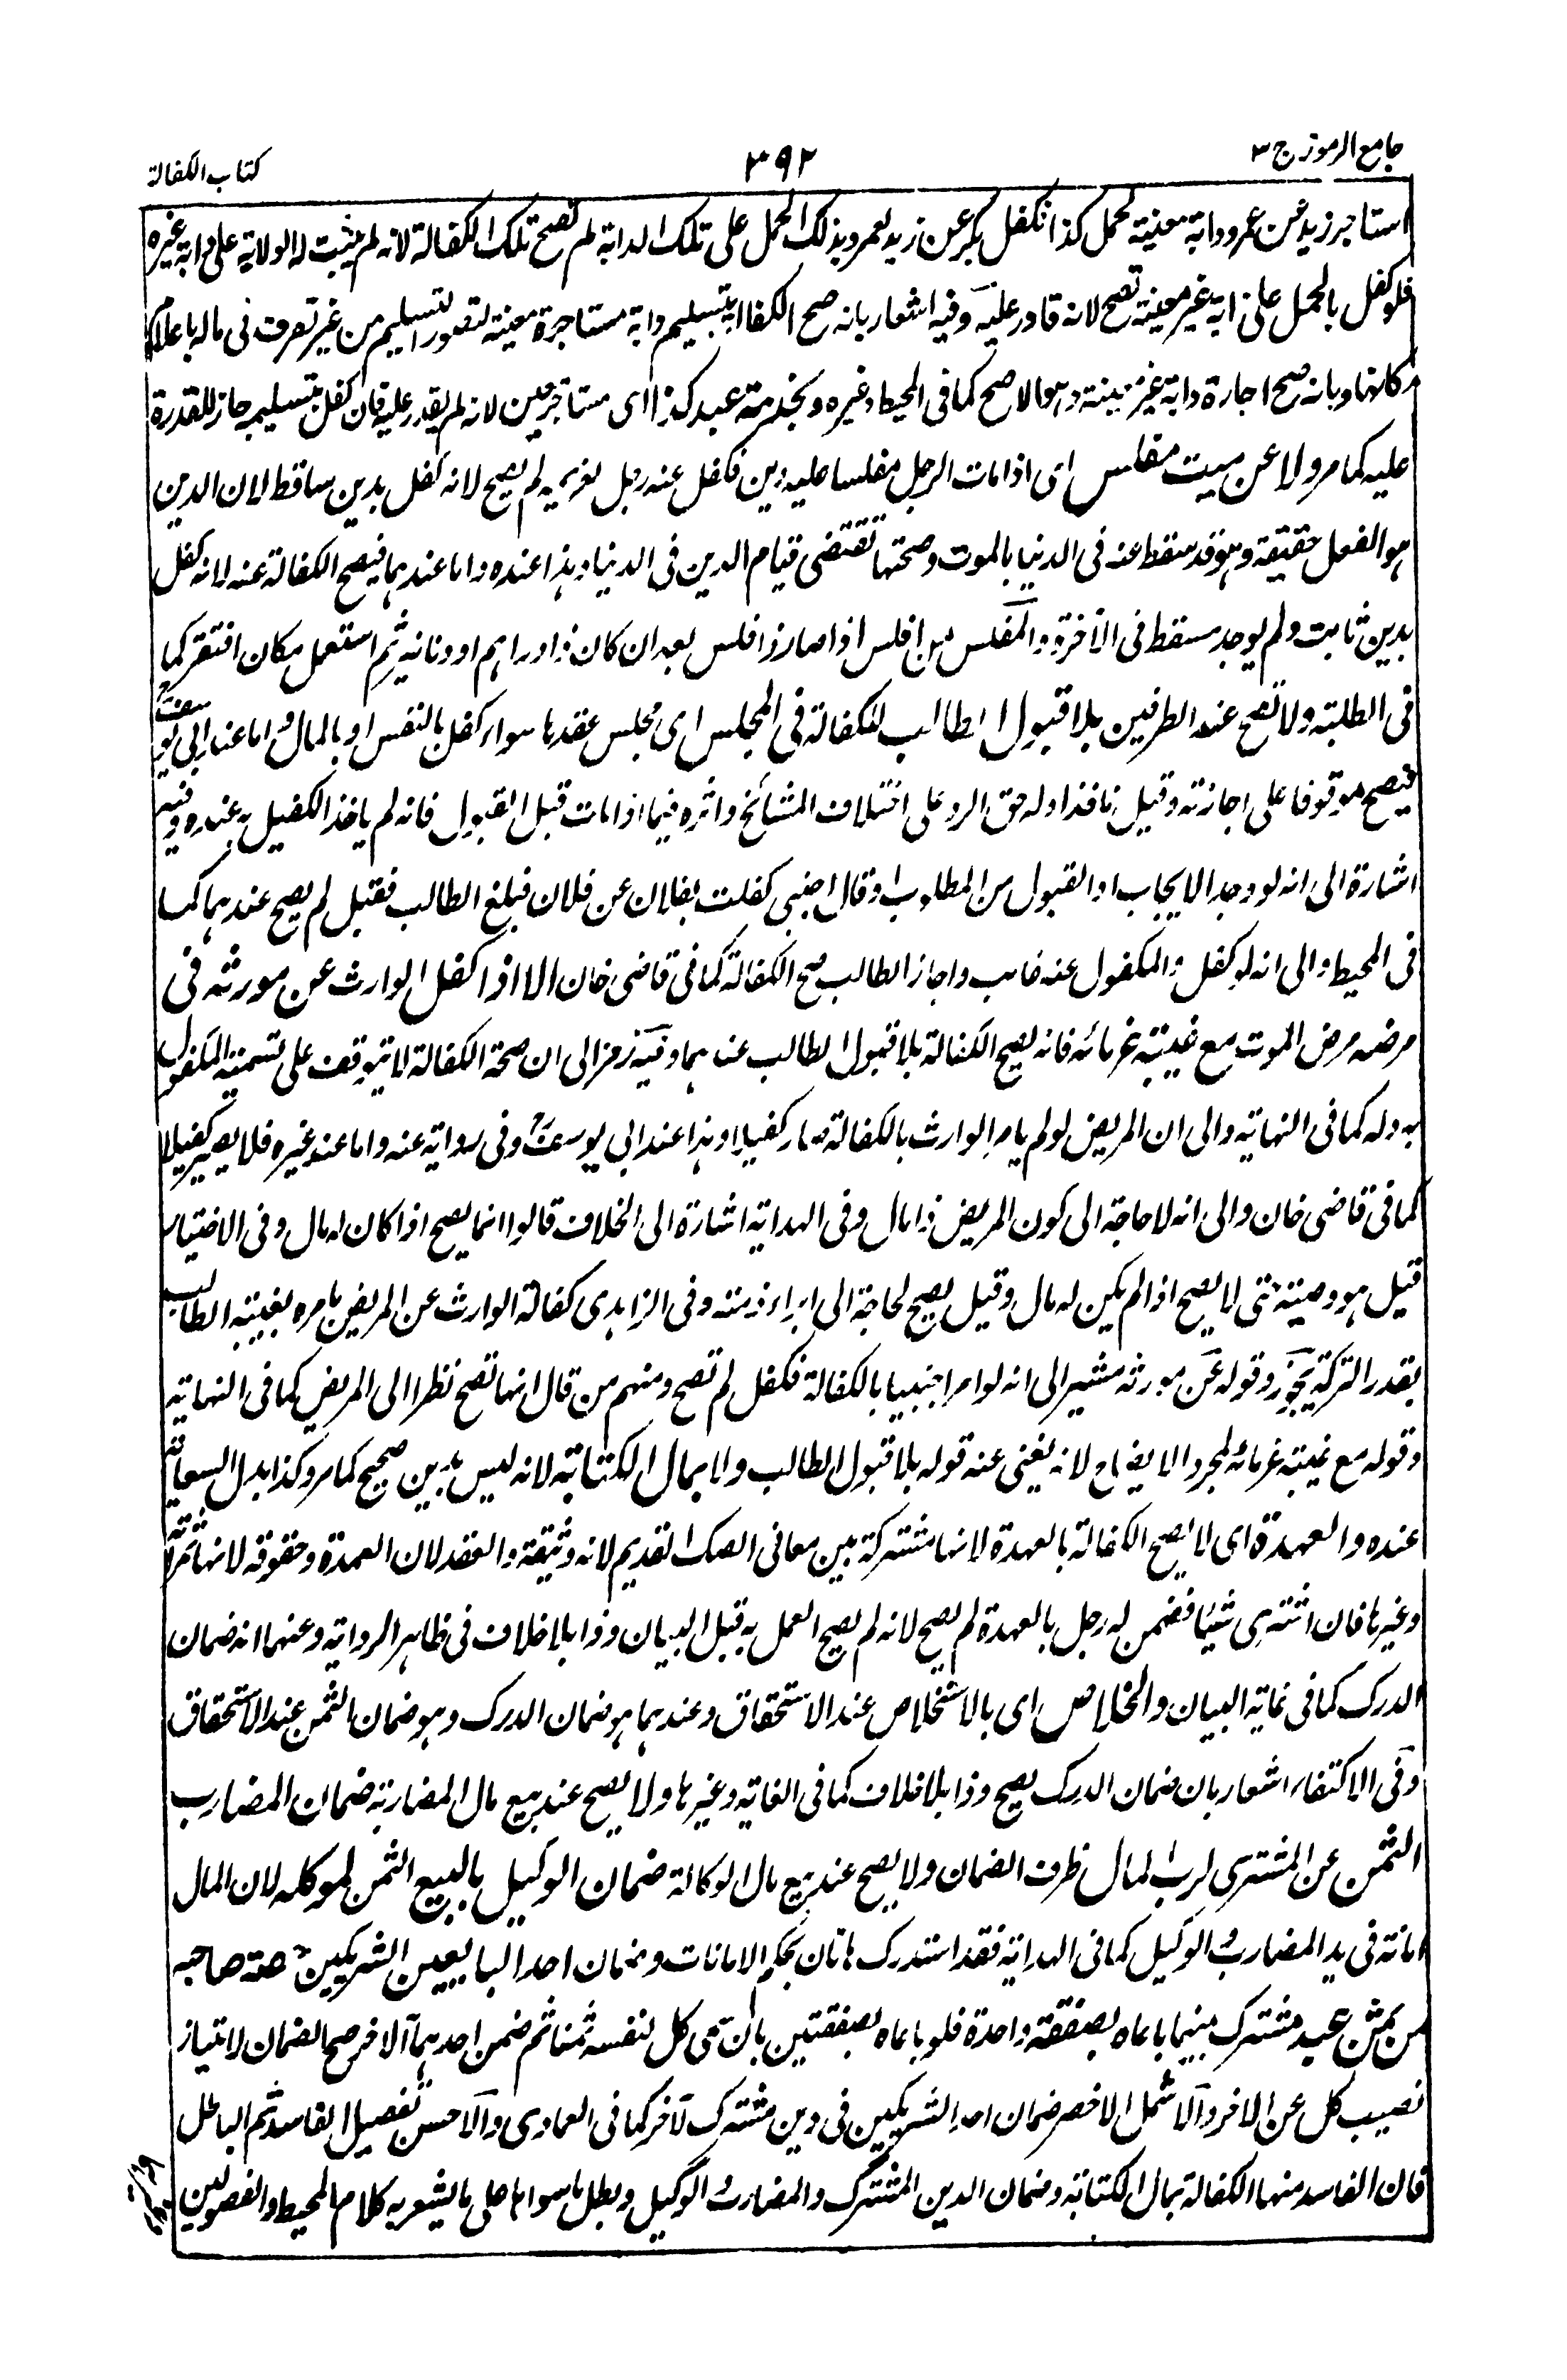 جامع الرموز ج ٣
٣٩٢
كتاب الكفالة
استاجر زيد من عمرو دابة معينة لحمل كذا فكفل بكر عن زيد لعمرو بذلك الحمل على تلك الدابة لم تصح تلك الكفالة لانه لم يثبت له الولاية على دابة غيره
فلو كفل بالحمل على دابة غير معينة تصح لانه قادر عليه وفيه اشعار بانه صح الكفالة بتسليم دابة مستاجرة معينة لتصور التسليم من غير تصرف فى ماله باعلام
مكانها وبانه صح اجارة دابة غير معينة وهو الاصح كما فى المحيط وغيره وبخدمة عبد كذا اى مستاجر معين لانه لم يقدر عليه فان كفل بتسليمه جاز للقدرة
عليه كما مر ولا عن ميت مفلس اى اذا مات الرجل مفلسا عليه دين فكفل عنه رجل لغريمه لم يصح لانه كفل بدين ساقط لان الدين
هو الفعل حقيقة وهو قد سقط عنه فى الدنيا بالموت وصحتها تقتضى قيام الدين فى الدنيا وهذا عنده واما عندهما فيصح الكفالة عنه لانه كفل
بدين ثابت ولم يوجد مسقط فى الآخرة والمفلس من افلس اذا صار ذا فلس بعد ان كان ذا دراهم او دنانير ثم استعمل مكان افتقر كما
فى الطلبة ولا تصح عند الطرفين بلا قبول الطالب للكفالة فى المجلس اى مجلس عقدها سواء كفل بالنفس او بالمال واما عند ابى يوسف
فيصح موقوفا على اجازته وقيل نافذا وله حق الرد على اختلاف المشائخ واثره فيما اذا مات قبل القبول فانه لم ياخذ الكفيل به عنده وفيه
اشارة الى انه لو وجد الايجاب او القبول من المطلوب او قال اجنبى كفلت بفلان عن فلان فبلغ الطالب فقبل لم يصح عندهما كما
فى المحيط والى انه لو كفل والمكفول عنه غائب واجاز الطالب صح الكفالة كما فى قاضى خان الا اذا كفل الوارث عن مورثه فى
مرضه مرض الموت مع غيبة غرمائه فانه يصح الكفالة بلا قبول الطالب عندهما وفيه رمز الى ان صحة الكفالة لا تتوقف على تسمية المكفول
به وله كما فى النهاية والى ان المريض لو لم يامر الوارث بالكفالة صار كفيلا وهذا عند ابى يوسف وفى رواية عنه واما عند غيره فلا يصير كفيلا
كما فى قاضى خان والى انه لا حاجة الى كون المريض ذا مال وفى الهداية اشارة الى الخلاف قالوا انما يصح اذا كان له مال وفى الاختيار
قيل هو وصية حتى لا يصح اذا لم يكن له مال وقيل يصح لحاجة الى ابراء ذمته وفى الزاهدى كفالة الوارث عن المريض بامره بغيبة الطالب
بقدر التركة يجوز وقوله عن مورثه مشير الى انه لو امر اجنبيا بالكفالة فكفل لم تصح ومنهم من قال انها تصح نظرا الى المريض كما فى النهاية
وقوله مع غيبة غرمائه لمجرد الايضاح لانه يغنى عنه قوله بلا قبول الطالب ولا بمال الكتابة لانه ليس بدين صحيح كما مر وكذا بدل السعاية
عنده والعهدة اى لا يصح الكفالة بالعهدة لانها مشتركة بين معانى الصك القديم لانه وثيقة والعقد لان العهدة وحقوقه لانها ثمراته
وغيرها فان اشترى شيئا فضمن له رجل بالعهدة لم يصح لانه لم يصح العمل به قبل البيان وذا بلا خلاف فى ظاهر الرواية وعنهما انه ضمان
الدرك كما فى غاية البيان والخلاص اى بالاستخلاص عند الاستحقاق وعندهما هو ضمان الدرك وهو ضمان الثمن عند الاستحقاق
وفى الاكتفاء اشعار بان ضمان الدرك يصح وذا بلا خلاف كما فى الغاية وغيرها ولا يصح عند بيع مال المضاربة ضمان المضارب
الثمن عن المشترى لرب المال ظرف الضمان ولا يصح عند بيع مال الوكالة ضمان الوكيل بالبيع الثمن لموكله لان المال
امانة فى يد المضارب والوكيل كما فى الهداية فقد استدرك هاتان بحكم الامانات وضمان احد البايعين الشريكين حصة صاحبه
من ثمن عبد مشترك بينهما باعاه بصفقة واحدة فلو باعاه بصفقتين بان سمى كل لنفسه ثمنا ثم ضمن احدهما الآخر صح الضمان لامتياز
نصيب كل عن الآخر والاشمل الاخصر ضمان احد الشريكين فى دين مشترك لآخر كما فى العمادى والاحسن تفصيل الفاسد ثم الباطل
فان الفاسد منها الكفالة بمال الكتابة وضمان الدين المشترك والمضارب الوكيل وبطل ما سواها على ما يشعر به كلام المحيط والفصولين